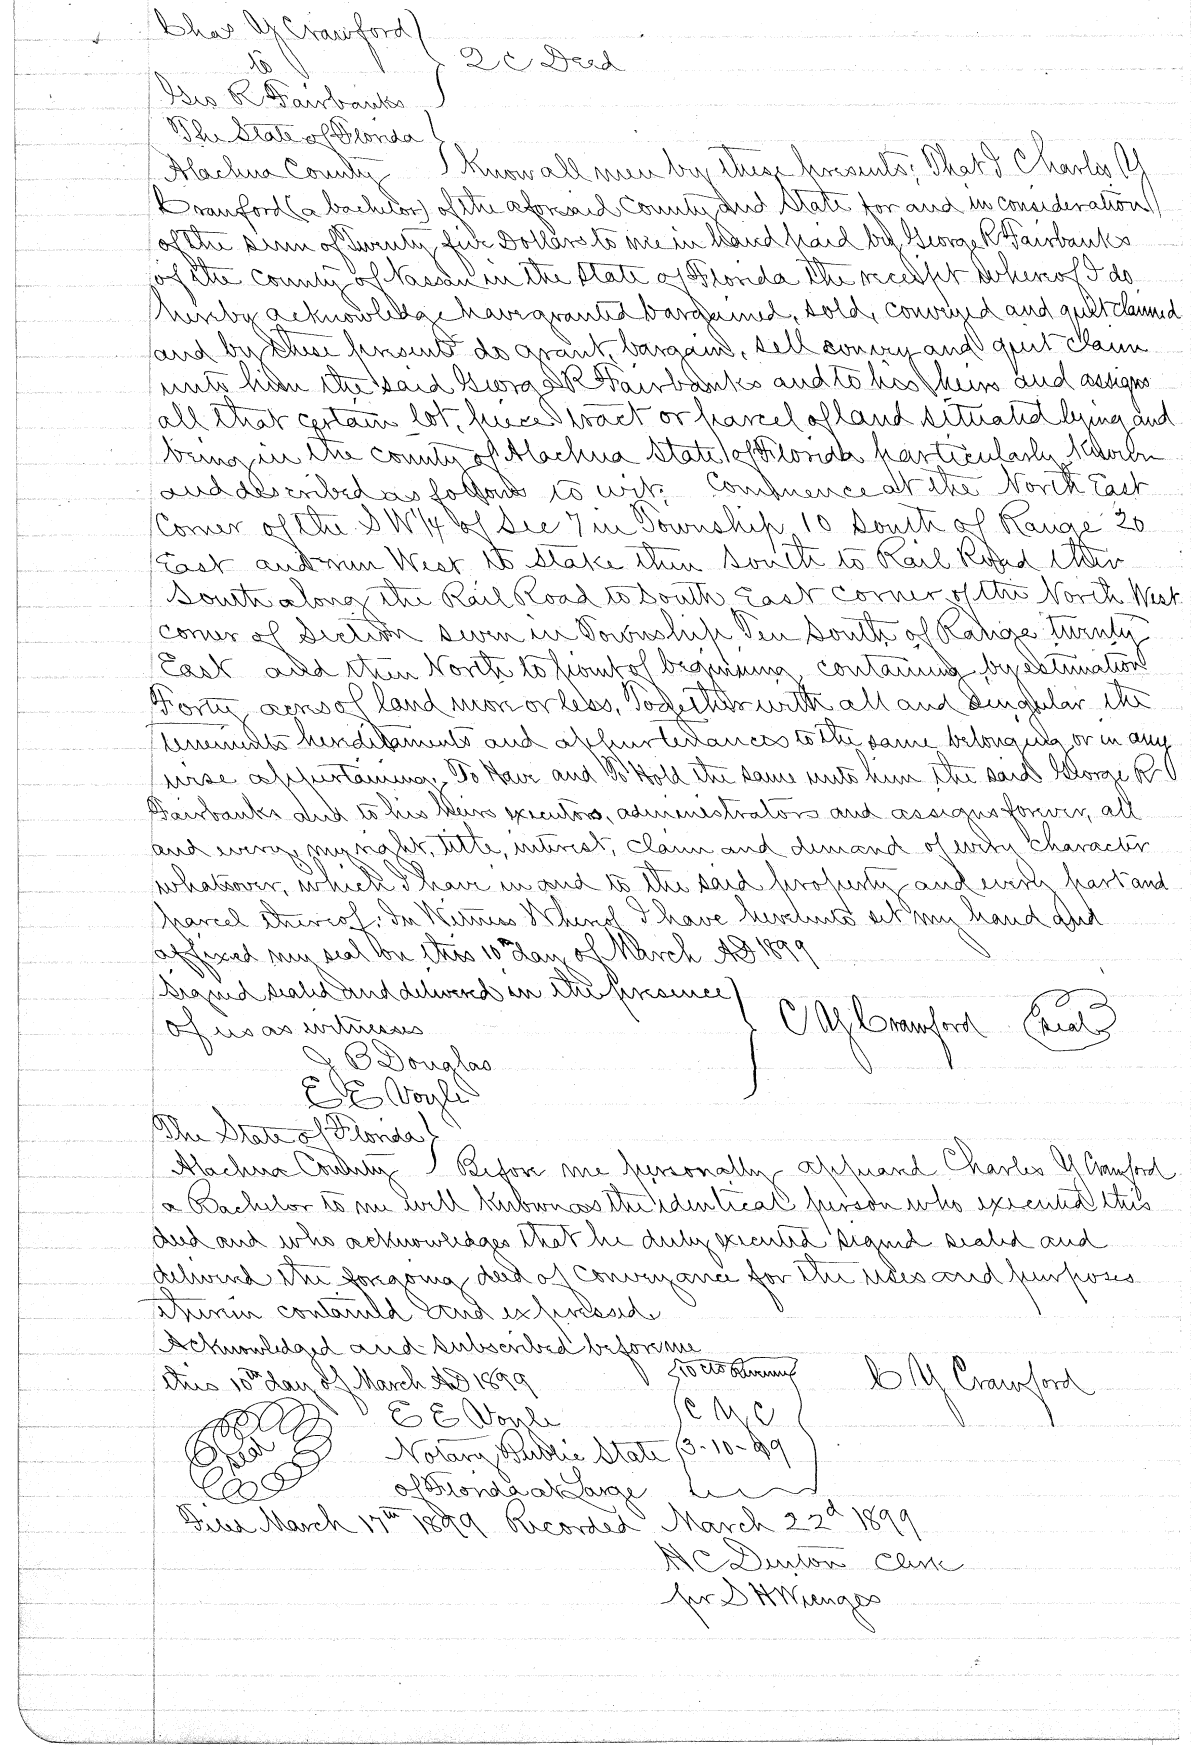 Chas Y Crawford
to
2 C Deed
Geo R Fairbanks
The State of Florida
Alachua County Know all men by these presents; That I Charles Y
Crawford (a bachelor) of the aforesaid County and State for and in consideration
of the sum of Twenty five Dollars to me in hand paid by George R Fairbanks
of the county of Nassau in the State of Florida the receipt whereof I do
hereby acknowledge have granted bargained, sold, conveyed and quit claimed
and by these presents do grant, bargain, sell convey and quit claim
unto him the said George R Fairbanks and to his heirs and assigns
all that certain lot, piece tract or parcel of land situated lying and
being in the county of Alachua State of Florida particularly known
and described as follows to wit; Commence at the North East
Corner of the SW 1/4 of Sec 7 in Township 10 South of Range 20
East and run West to stake then South to Rail Road then
South along the Rail Road to South East corner of the North West
corner of Section seven in Township Ten South of Range twenty
East and then North to point of beginning containing by estimation
Forty acres of land more or less, Together with all and singular the
tenements hereditaments and appurtenances to the same belonging or in any
wise appertaining. To Have and To Hold the same unto him the said George R
Fairbanks and to his heirs executors, administrators and assigns forever, all
and every my right, title, interest, claim and demand of every character
whatsover, which I have in and to the said property and every part and
parcel thereof. In Witness Whereof I have hereunto set my hand and
affixed my seal on this 10th day of March AD 1899
Signed sealed and delivered in the presence
of us as witnesses C Y Crawford (Seal)
J B Douglas
E E Voyle
The State of Florida
Alachua County Before me personally appeared Charles Y Crawford
a Bachelor to me well known as the identical person who executed this
deed and who acknowledges that he duly executed signed sealed and
delivered the foregoing deed of conveyance for the uses and purposes
therein contained and expressed.
Acknowledged and subscribed before me
this 10th day of March AD 1899 50 cts Revenue C Y Crawford
Seal E E Voyle C Y C
Notary Public State 3-10-99
of Florida at Large
Filed March 17th 1899 Recorded March 22d 1899
H C Denton Clerk
per S H Wienges